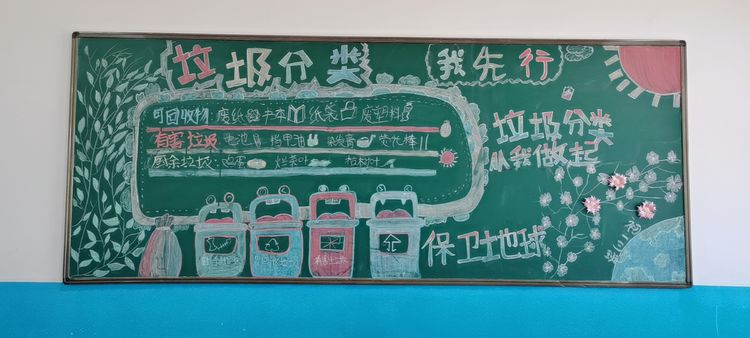 垃圾分类 我先行
可回收物:废纸 本 纸袋 废塑料
有害垃圾 电池 指甲油 染发膏 荧光棒
厨余垃圾: 烂菜叶
垃圾分类
从我做起
保卫地球
有害垃圾